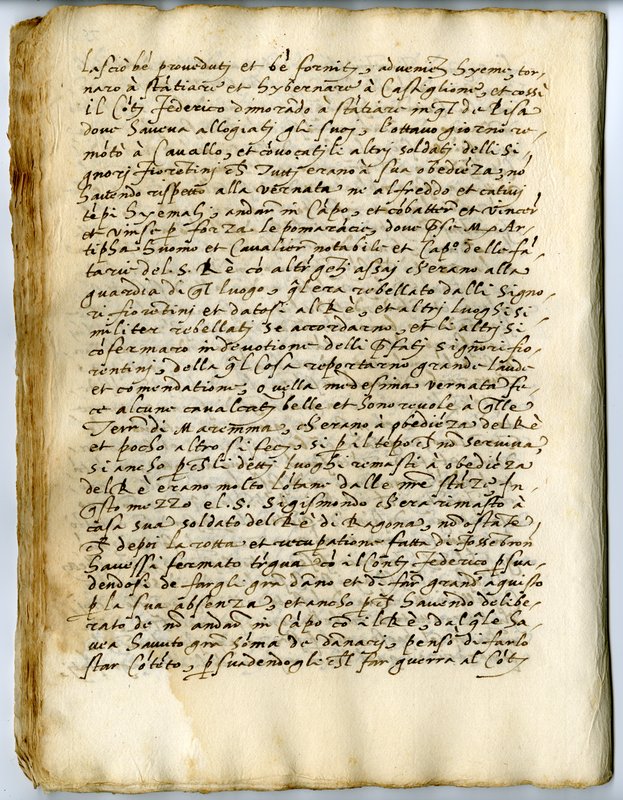 lasciò bé proveduti et bé forniti, adveniē hyeme, tor-
naro à státiare et hybernare à Castiglione, et cossè
il Cótj Federico dimorádo à státiare in ql de Pisa
dove haveva allogiati gli suoj, l'ottavo giorno re-
mótò à Cavallo, et cóvocati li altri soldati delli Si-
gnori fiorentini ch̄ Tutti erano à sua obediéza, nó
havendo rispetto alla vernata ne al freddo et cativi
tépi hyemali, andār in Cápo, et cóbatter et vincer
et vinse p forza le pomarácie, dove pse M. Ar-
tipha huomo et Cavalier notabile et Capº delle fá-
tarie del S. Rè có altrj géti assaj ch'erano alla
guardia di ql luogo, ql era rebellato dalli Signo-
ri fiorentini et datosi al Rè, et altri luoghi si-
militer rebellati se accordarno, et li altri si
cófermaro in devotione delli pfati Signori fio-
rentini, della ql Cosa reportarno grande laude
et comendatione, o vella medesima vernata fe-
ce alcune cavalcati belle et honorevole à qlle
Terre di Maremma, ch'erano à obediéza del Rè
et pocho altro si fece, si p il tépo ch̄ nō serviva,
si ancho pch̄ li detti luoghi remasti à obediéza
del Rè erano molto lótane dalle nr̄e stáze. In
qsto mezzo el S. Sigismondo ch'era rimasto à
casa sua soldato del Rè di Ragona, nó ostáte
ch̄ depoi la rotta et recupatione fatta di Fossébron
havessi fermato trégua có il Contj Federico psua-
dendosi de fargli grā dano et di far grand' aquisto
p la sua absenza, et ancho pch̄ havendo delibe-
rato de nō andar in Cápo cō il Rè, dal qle ha-
vea havuto grā sóma de danarj, pensò di farlo
star Cótéto, psuadendogli ch̄l far guerra al Cótj